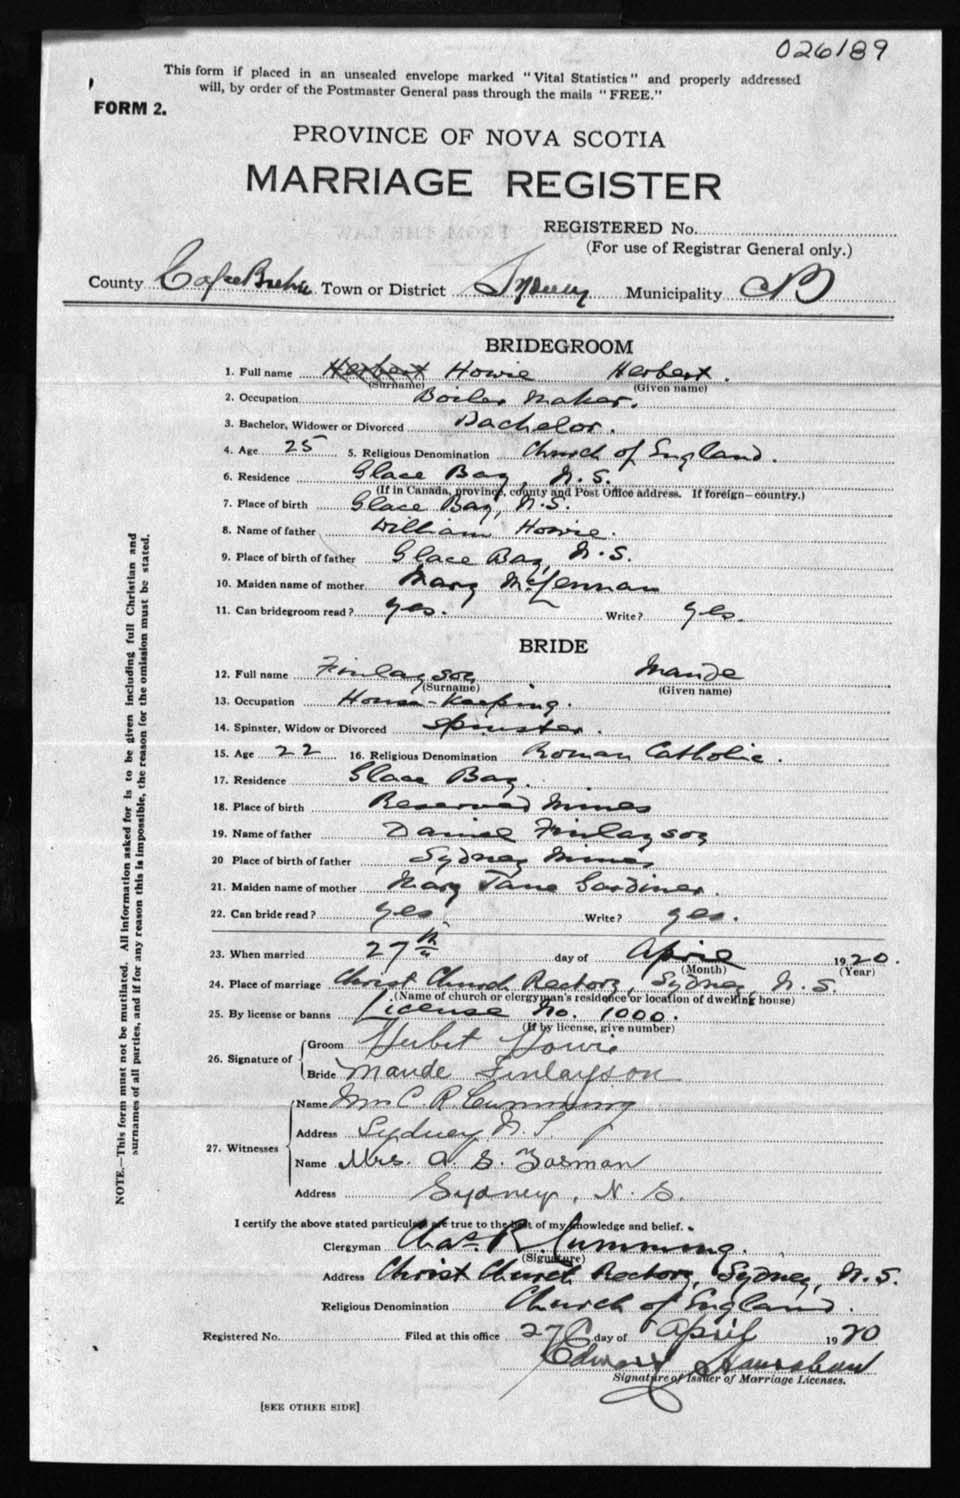 026189
This form if placed in an unsealed envelope marked "Vital Statistics" and properly addressed
will, by order of the Postmaster General pass through the mails "FREE."
FORM 2.
PROVINCE OF NOVA SCOTIA
MARRIAGE REGISTER
REGISTERED No.
(For use of Registrar General only.)
County Cape Breton Town or District Sydney Municipality CB
BRIDEGROOM
1. Full name Herbert Howie Herbert.
(Surname) (Given name)
2. Occupation Boiler Maker.
3. Bachelor, Widower or Divorced Bachelor.
4. Age 25 5. Religious Denomination Church of England.
6. Residence Glace Bay, N.S.
(If in Canada, province, county and Post Office address. If foreign—country.)
7. Place of birth Glace Bay, N.S.
8. Name of father William Howie.
9. Place of birth of father Glace Bay, N.S.
10. Maiden name of mother Mary McLennan
11. Can bridegroom read? yes. Write? yes.
BRIDE
12. Full name Finlayson Maude
(Surname) (Given name)
13. Occupation House-Keeping.
14. Spinster, Widow or Divorced Spinster.
15. Age 22 16. Religious Denomination Roman Catholic.
17. Residence Glace Bay.
18. Place of birth Reserved Mines
19. Name of father Daniel Finlayson
20 Place of birth of father Sydney Mines
21. Maiden name of mother Mary Jane Gardiner.
22. Can bride read? yes. Write? yes.
23. When married 27th day of April 1920.
(Month) (Year)
24. Place of marriage Christ Church Rectory, Sydney, N.S.
(Name of church or clergyman's residence or location of dwelling house)
25. By license or banns License No. 1000.
(If by license, give number)
26. Signature of
Groom Herbert Howie
Bride Maude Finlayson
27. Witnesses
Name C. R. Cumming
Address Sydney N.S.
Name Mrs. A. S.
Address Sydney, N.S.
I certify the above stated particulars are true to the best of my knowledge and belief.
Clergyman Chas. R. Cumming.
(Signature)
Address Christ Church Rectory, Sydney, N.S.
Religious Denomination Church of England.
Registered No. Filed at this office 27 day of April 1920
Edward
Signature of Issuer of Marriage Licenses.
[SEE OTHER SIDE]
NOTE.—This form must not be mutilated. All information asked for is to be given including full Christian and
surnames of all parties, and if for any reason this is impossible, the reason for the omission must be stated.